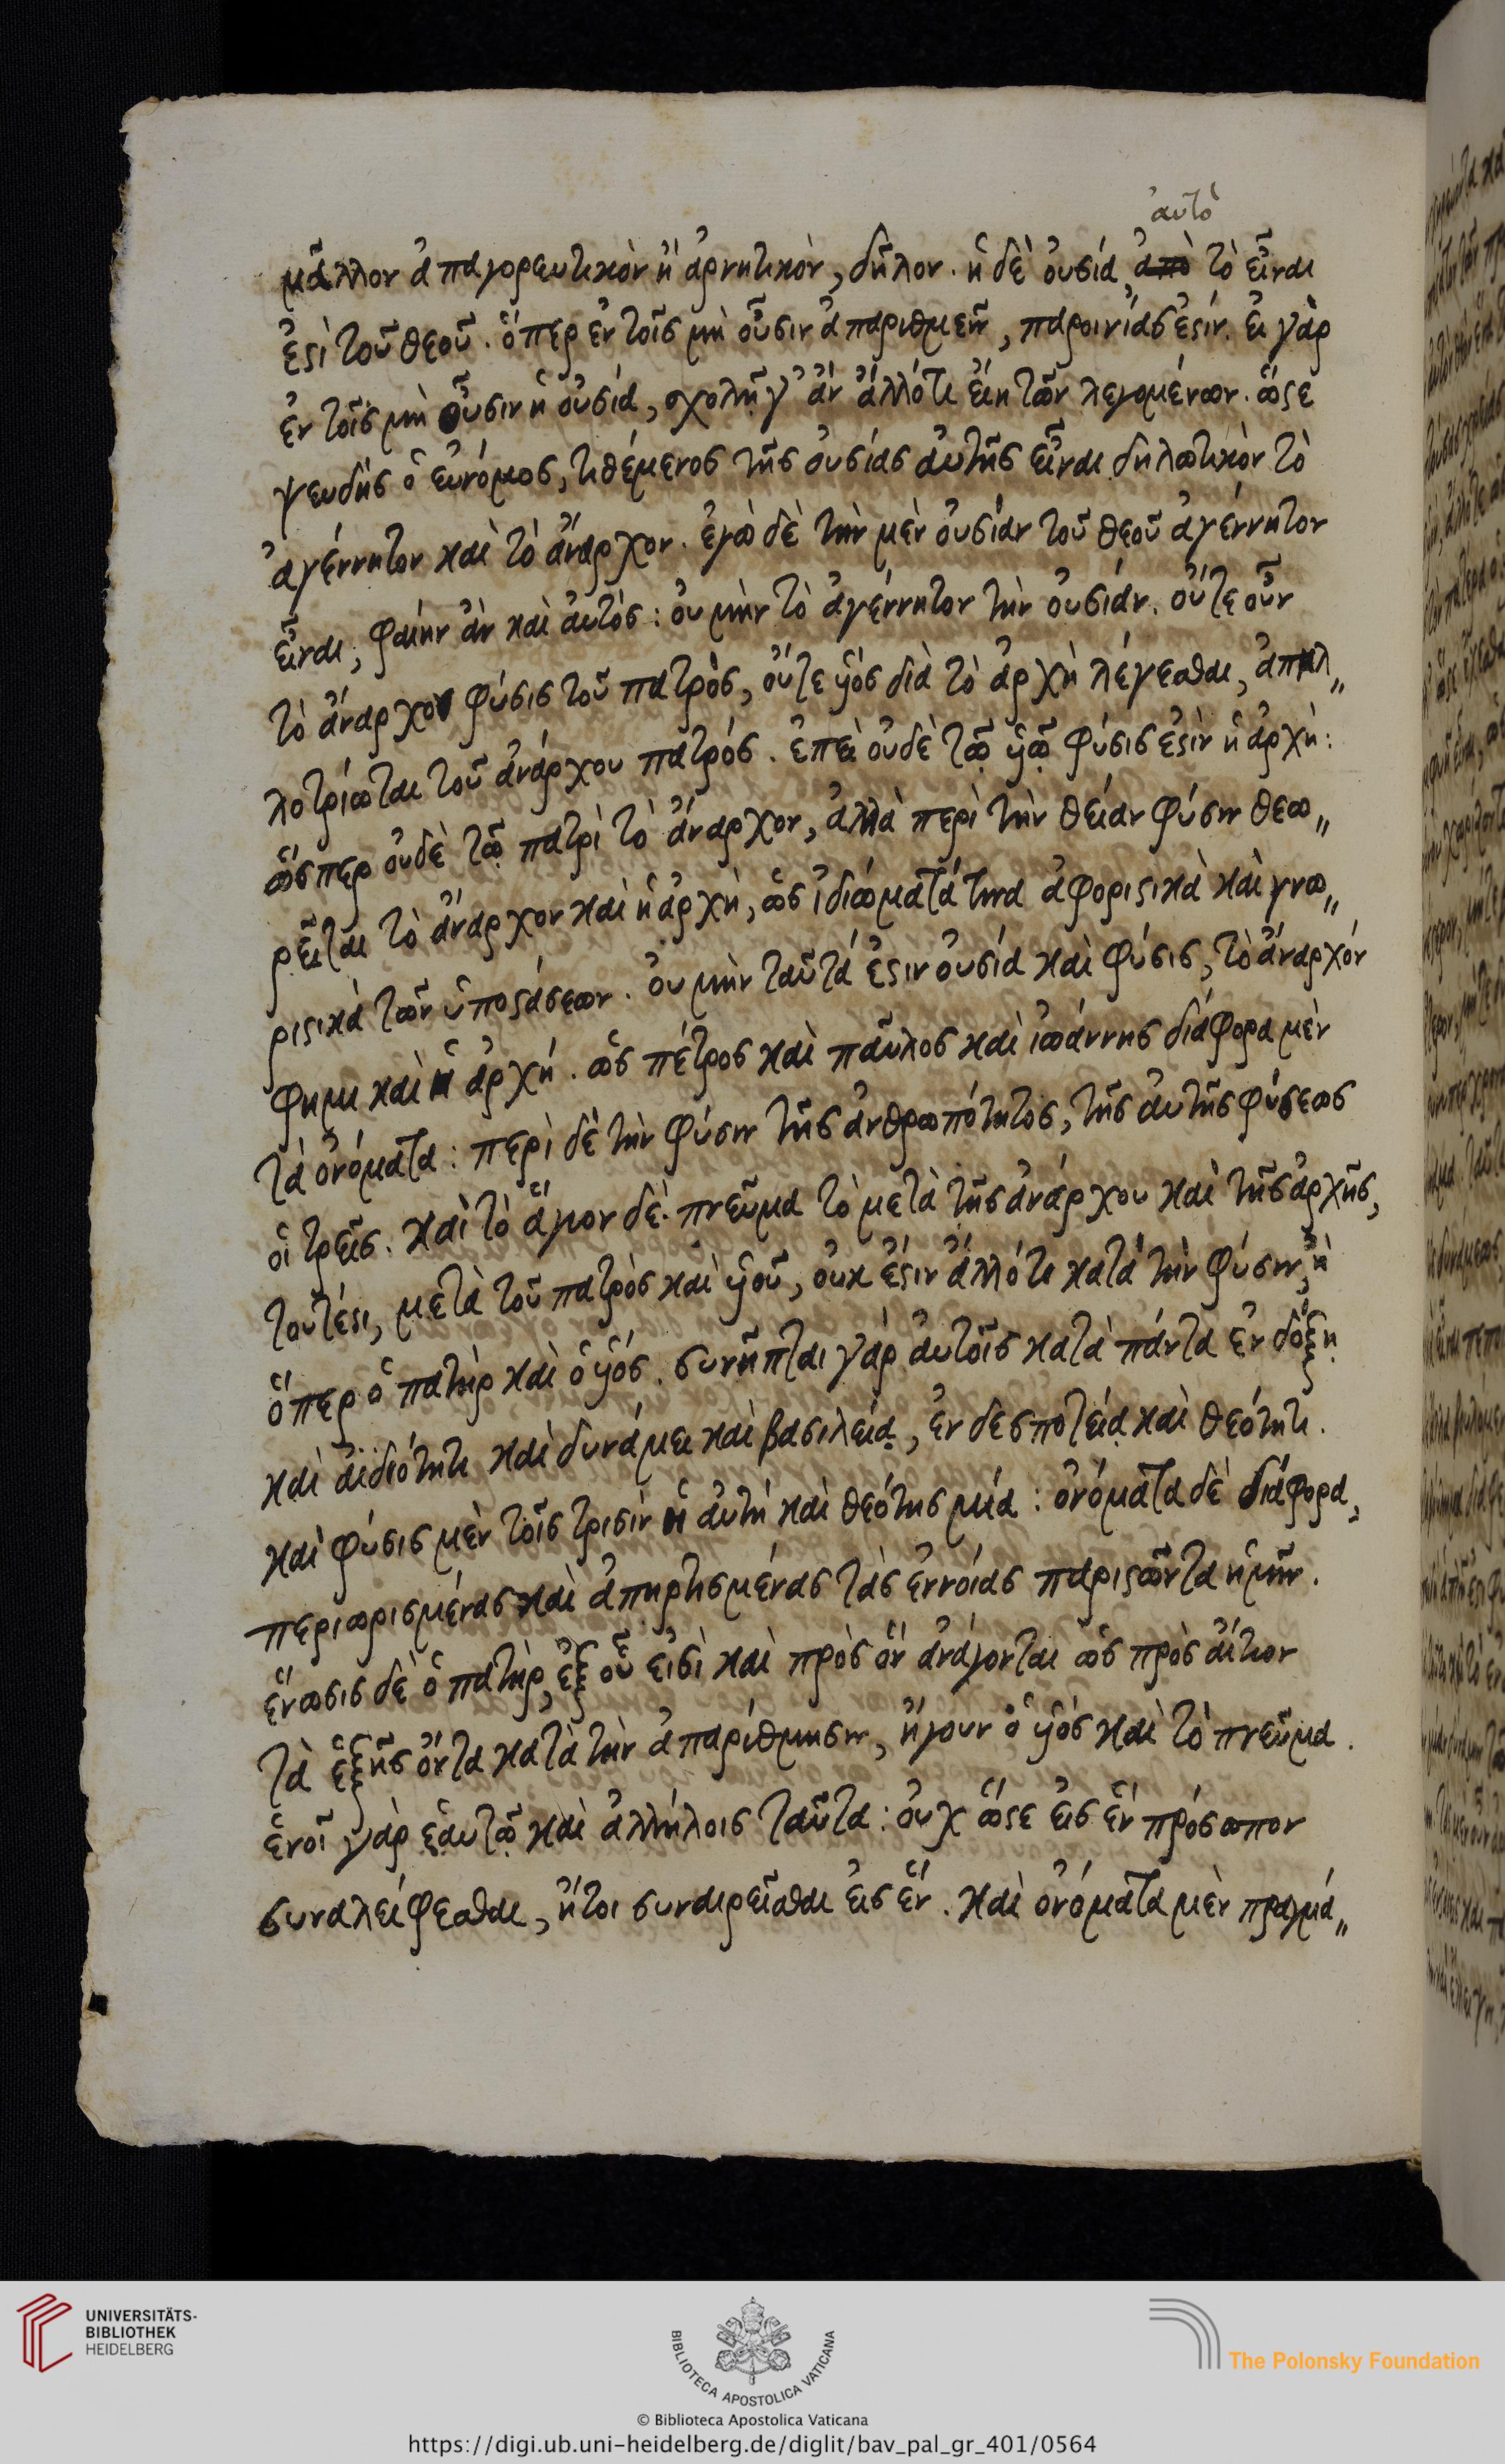 αὐτὸ
μᾶλλον ἀπαγορευτικὸν ἢ ἀρνητικὸν, δῆλον. ἡ δὲ οὐσία, ἀπὸ τὸ εἶναι
ἐστὶ τοῦ θεοῦ. ὅπερ ἐν τοῖς μὴ οὖσιν ἀπαριθμεῖν, παροινίας ἐστίν. εἰ γὰρ
ἐν τοῖς μὴ οὖσιν ἡ οὐσία, σχολῆ γ' ἂν ἄλλό τι εἴη τῶν λεγομένων. ὥστε
ψευδὴς ὁ εὐνόμιος, τιθέμενος τῆς οὐσίας αὐτῆς εἶναι δηλωτικὸν τὸ
ἀγέννητον καὶ τὸ ἄναρχον. ἐγὼ δὲ τὴν μὲν οὐσίαν τοῦ θεοῦ ἀγέννητον
εἶναι, φαίην ἂν καὶ αὐτὸς: οὐ μὴν τὸ ἀγέννητον τὴν οὐσίαν. οὔτε οὖν
τὸ ἄναρχον φύσις τοῦ πατρὸς, οὔτε υἱὸς διὰ τὸ ἀρχὴ λέγεσθαι, ἀπηλ„
λοτρίωται τοῦ ἀνάρχου πατρός. ἐπεὶ οὐδὲ τῷ υἱῷ φύσις ἐστὶν ἡ ἀρχὴ:
ὥσπερ οὐδὲ τῷ πατρὶ τὸ ἄναρχον, ἀλλὰ περὶ τὴν θείαν φύσιν θεω„
ρεῖται τὸ ἄναρχον καὶ ἡ ἀρχὴ, ὡς ἰδιώματά τινα ἀφοριστικὰ καὶ γνω„
ριστικὰ τῶν ὑποστάσεων. οὐ μὴν ταὐτά ἐστιν οὐσία καὶ φύσις, τὸ ἄναρχόν
φημι καὶ ἡ ἀρχή. ὡς πέτρος καὶ παῦλος καὶ ἰωάννης διάφορα μὲν
τὰ ὀνόματα: περὶ δὲ τὴν φύσιν τῆς ἀνθρωπότητος, τῆς αὐτῆς φύσεως
οἱ τρεῖς. καὶ τὸ ἅγιον δὲ πνεῦμα τὸ μετὰ τῆς ἀνάρχου καὶ τῆς ἀρχῆς,
τουτέστι, μετὰ τοῦ πατρὸς καὶ υἱοῦ, οὐκ ἔστιν ἄλλό τι κατὰ τὴν φύσιν, ἢ
ὅπερ ὁ πατὴρ καὶ ὁ υἱός. συνῆπται γὰρ αὐτοῖς κατὰ πάντα ἐν δόξῃ
καὶ ἀϊδιότητι καὶ δυνάμει καὶ βασιλείᾳ, ἐν δεσποτείᾳ καὶ θεότητι.
καὶ φύσις μὲν τοῖς τρισὶν ἡ αὐτὴ καὶ θεότης μία: ὀνόματα δὲ διάφορα,
περιωρισμένας καὶ ἀπηρτισμένας τὰς ἐννοίας παριστῶντα ἡμῖν.
ἕνωσις δὲ ὁ πατὴρ, ἐξ οὗ εἰσὶ καὶ πρὸς ὃν ἀνάγονται ὡς πρὸς αἴτιον
τὰ ἑξῆς ὄντα κατὰ τὴν ἀπαρίθμησιν, ἤγουν ὁ υἱὸς καὶ τὸ πνεῦμα.
ἑνοῖ γὰρ ἑαυτῷ καὶ ἀλλήλοις ταῦτα: οὐχ ὥστε εἰς ἓν πρόσωπον
συναλείφεσθαι, ἤτοι συναιρεῖσθαι εἰς ἕν. καὶ ὀνόματα μὲν πραγμά„
UNIVERSITÄTS-
BIBLIOTHEK
HEIDELBERG
BIBLIOTECA APOSTOLICA VATICANA
The Polonsky Foundation
© Biblioteca Apostolica Vaticana
https://digi.ub.uni-heidelberg.de/diglit/bav_pal_gr_401/0564